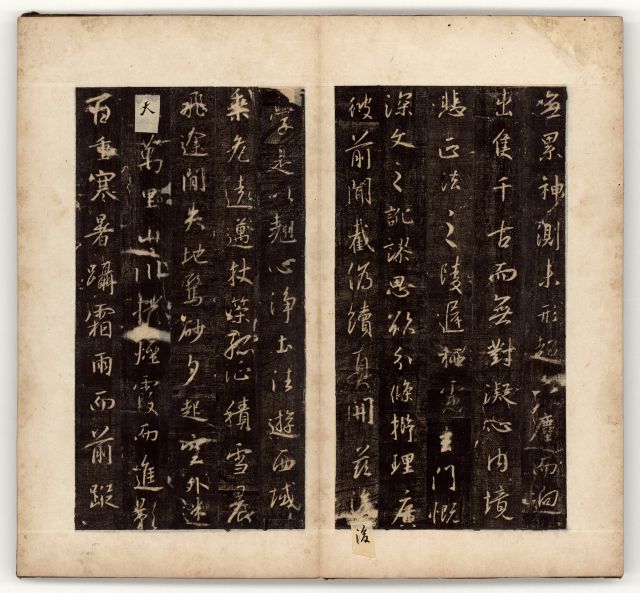 無累神測未形超六塵而迥
出隻千古而無對凝心內境
悲正法之陵遲栖慮玄門慨
深文之訛謬思欲分條析理廣
彼前聞截偽續真開茲後
後
學是以翹心淨土法遊西域
乘危遠邁杖策孤征積雪晨
飛途間失地驚砂夕起空外迷
天萬里山川撥煙霞而進影
百重寒暑躡霜雨而前蹤